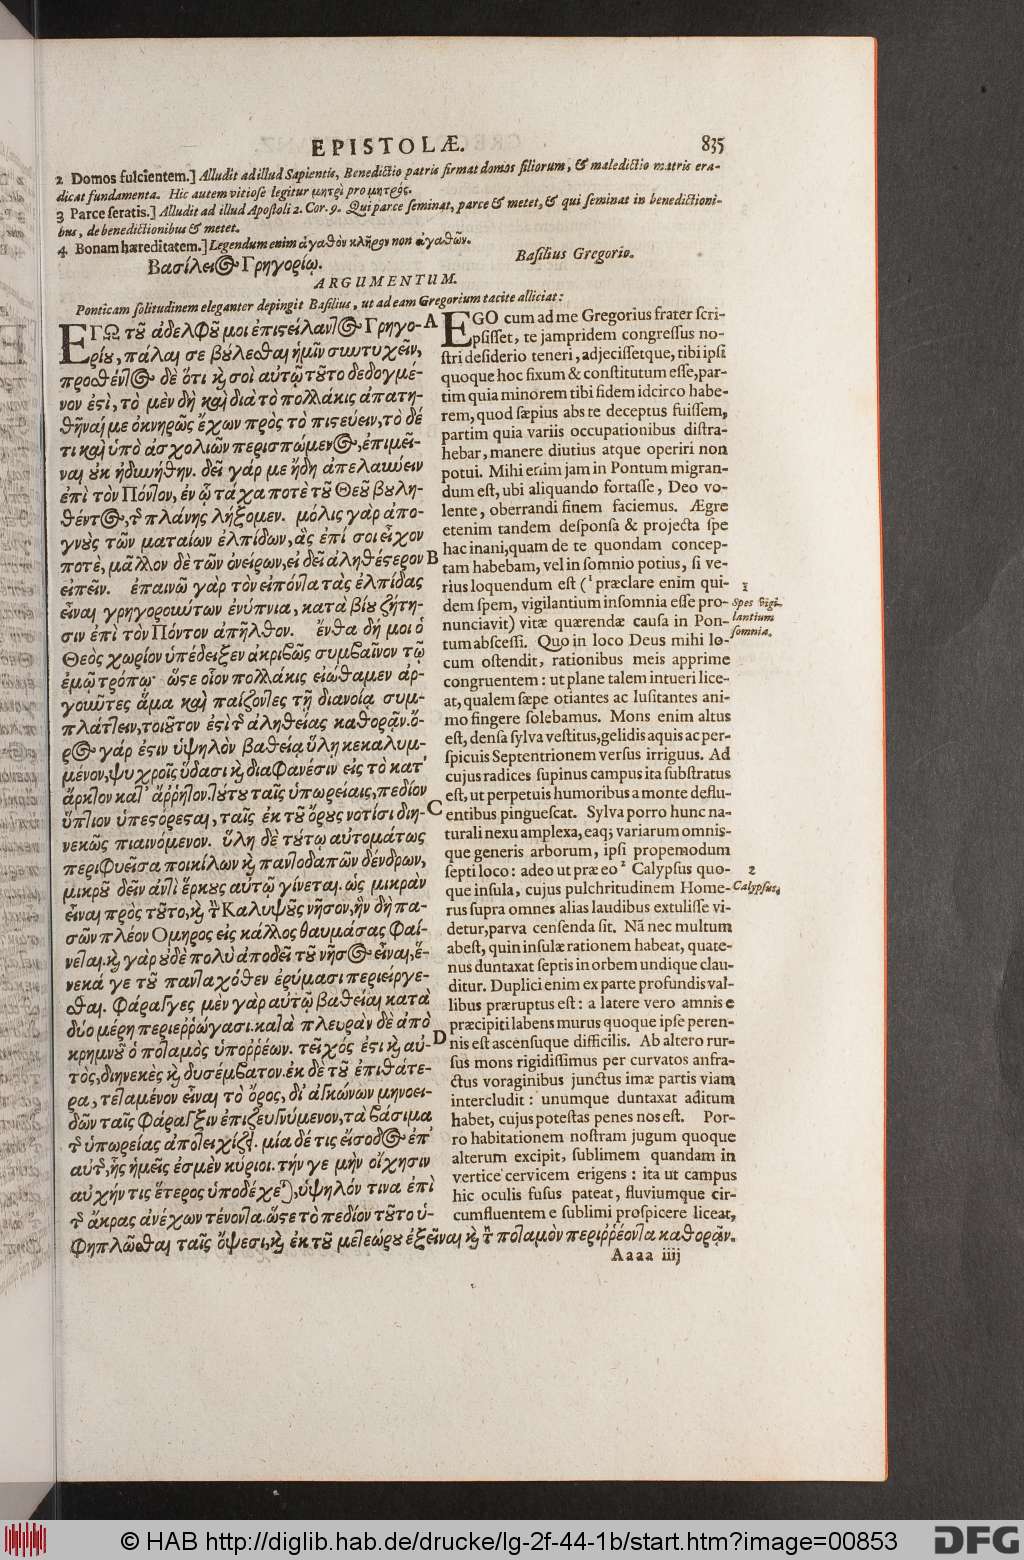 EPISTOLÆ. 835
2 Domos fulcientem.] Alludit ad illud Sapientis, Benedictio patris firmat domos filiorum, & maledictio matris era-
dicat fundamenta. Hic autem vitiose legitur μητρὶ pro μητρός.
3 Parce seratis.] Alludit ad illud Apostoli 2. Cor. 9. Qui parce seminat, parce & metet, & qui seminat in benedictioni-
bus, de benedictionibus & metet.
4 Bonam hæreditatem.] Legendum enim ἀγαθὸν κλῆρον non ἀγαθῶν.
Βασίλειος Γρηγορίῳ.
Basilius Gregorio.
ARGUMENTUM.
Ponticam solitudinem eleganter depingit Basilius, ut ad eam Gregorium tacite alliciat:
ΕΓΩ τοῦ ἀδελφοῦ μοι ἐπιστείλαντος Γρηγο-
ρίου, πάλαι σε βούλεσθαι ἡμῖν συντυχεῖν,
προσθέντος δὲ ὅτι καὶ σοὶ αὐτῷ τοῦτο δεδογμέ-
νον ἐστὶ, τὸ μὲν δὴ καὶ διὰ τὸ πολλάκις ἀπατη-
θῆναί με ὀκνηρῶς ἔχων πρὸς τὸ πιστεύειν, τὸ δέ
τι καὶ ὑπὸ ἀσχολιῶν περισπώμενος, ἐπιμεῖ-
ναι οὐκ ἠδυνήθην. δεῖ γάρ με ἤδη ἀπελαύνειν
ἐπὶ τὸν Πόντον, ἐν ᾧ τάχα ποτὲ τοῦ Θεοῦ βουλη-
θέντος, τῆς πλάνης λήξομεν. μόλις γὰρ ἀπο-
γνοὺς τῶν ματαίων ἐλπίδων, ἃς ἐπί σοι εἶχον
ποτέ, μᾶλλον δὲ τῶν ὀνείρων, εἰ δεῖ ἀληθέστερον
εἰπεῖν. ἐπαινῶ γὰρ τὸν εἰπόντα τὰς ἐλπίδας
εἶναι γρηγορούντων ἐνύπνια, κατὰ βίου ζήτη-
σιν ἐπὶ τὸν Πόντον ἀπῆλθον. ἔνθα δή μοι ὁ
Θεὸς χωρίον ὑπέδειξεν ἀκριβῶς συμβαῖνον τῷ
ἐμῷ τρόπῳ· ὥστε οἷον πολλάκις εἰώθαμεν ἀρ-
γοῦντες ἅμα καὶ παίζοντες τῇ διανοίᾳ συμ-
πλάττειν, τοιοῦτον ἐστὶ τῆς ἀληθείας καθορᾷν. ὄ-
ρος γάρ ἐστιν ὑψηλὸν βαθείᾳ ὕλῃ κεκαλυμ-
μένον, ψυχροῖς ὕδασι καὶ διαφανέσιν εἰς τὸ κατ'
ἄρκτον κατ' ἄῤῥητον. τούτου ταῖς ὑπωρείαις, πεδίον
ὕπτιον ὑπεστόρεσται, ταῖς ἐκ τοῦ ὄρους νοτίσι διη-
νεκῶς πιαινόμενον. ὕλη δὲ τούτῳ αὐτομάτως
περιφυεῖσα ποικίλων καὶ παντοδαπῶν δένδρων,
μικροῦ δεῖν ἀντὶ ἕρκους αὐτῷ γίνεται. ὡς μικρὰν
εἶναι πρὸς τοῦτο, καὶ τὴν Καλυψοῦς νῆσον, ἣν δὴ πα-
σῶν πλέον Ομηρος εἰς κάλλος θαυμάσας φαί-
νεται. καὶ γὰρ οὐδὲ πολὺ ἀποδεῖ τοῦ νῆσος εἶναι, ἕ-
νεκά γε τοῦ πανταχόθεν ἐρύμασι περιείργε-
σθαι. φάραγγες μὲν γὰρ αὐτῷ βαθεῖαι κατὰ
δύο μέρη περιεῤῥώγασι. κατὰ πλευρὰν δὲ ἀπὸ
κρημνοῦ ὁ ποταμὸς ὑποῤῥέων. τεῖχός ἐστι καὶ αὐ-
τὸς, διηνεκὲς καὶ δυσέμβατον. ἐκ δὲ τοῦ ἐπὶ θάτε-
ρα, τεταμένον εἶναι τὸ ὄρος, δι' ἀγκώνων μηνοει-
δῶν ταῖς φάραγξιν ἐπιζευγνύμενον, τὰ βάσιμα
τῆς ὑπωρείας ἀποτειχίζει. μία δέ τις εἴσοδος ἐπ'
αὐτῆς, ἧς ἡμεῖς ἐσμὲν κύριοι. τήν γε μὴν οἴκησιν
αὐχήν τις ἕτερος ὑποδέχεται, ὑψηλόν τινα ἐπὶ
τῆς ἄκρας ἀνέχων τένοντα. ὥστε τὸ πεδίον τοῦτο ὑ-
φηπλῶσθαι ταῖς ὄψεσι, καὶ ἐκ τοῦ μετεώρου ἐξεῖναι καὶ τὸν ποταμὸν περιῤῥέοντα καθορᾷν.
A
B
C
D
EGO cum ad me Gregorius frater scri-
psisset, te jampridem congressus no-
stri desiderio teneri, adjecissetque, tibi ipsi
quoque hoc fixum & constitutum esse, par-
tim quia minorem tibi fidem idcirco habe-
rem, quod sæpius abs te deceptus fuissem,
partim quia variis occupationibus distra-
hebar, manere diutius atque operiri non
potui. Mihi enim jam in Pontum migran-
dum est, ubi aliquando fortasse, Deo vo-
lente, oberrandi finem faciemus. Ægre
etenim tandem desponsa & projecta spe
hac inani, quam de te quondam concep-
tam habebam, vel in somnio potius, si ve-
rius loquendum est (1 præclare enim qui-
dem spem, vigilantium insomnia esse pro-
nunciavit) vitæ quærendæ causa in Pon-
tum abscessi. Quo in loco Deus mihi lo-
cum ostendit, rationibus meis apprime
congruentem: ut plane talem intueri lice-
at, qualem sæpe otiantes ac lusitantes ani-
mo fingere solebamus. Mons enim altus
est, densa sylva vestitus, gelidis aquis ac per-
spicuis Septentrionem versus irriguus. Ad
cujus radices supinus campus ita substratus
est, ut perpetuis humoribus a monte deflu-
entibus pinguescat. Sylva porro hunc na-
turali nexu amplexa, eaq; variarum omnis-
que generis arborum, ipsi propemodum
septi loco: adeo ut præ eo 2 Calypsus quo-
que insula, cujus pulchritudinem Home-
rus supra omnes alias laudibus extulisse vi-
detur, parva censenda sit. Nã nec multum
abest, quin insulæ rationem habeat, quate-
nus duntaxat septis in orbem undique clau-
ditur. Duplici enim ex parte profundis val-
libus præruptus est: a latere vero amnis e
præcipiti labens murus quoque ipse peren-
nis est ascensuque difficilis. Ab altero rur-
sus mons rigidissimus per curvatos anfra-
ctus voraginibus junctus imæ partis viam
intercludit: unumque duntaxat aditum
habet, cujus potestas penes nos est. Por-
ro habitationem nostram jugum quoque
alterum excipit, sublimem quandam in
vertice cervicem erigens: ita ut campus
hic oculis fusus pateat, fluviumque cir-
cumfluentem e sublimi prospicere liceat,
1
Spes vigi-
lantium
somnia.
2
Calypsus.
Aaaa iiij
© HAB http://diglib.hab.de/drucke/lg-2f-44-1b/start.htm?image=00853
DFG